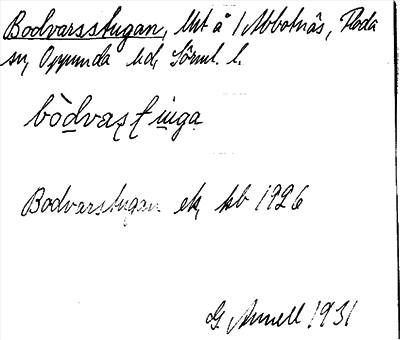 Bodvarsstugan, lht å 1 Abbotnäs, Floda
sn, Oppunda hd, Sörml. l.
bòdvaʂʈɯga
Bodvarstugan ek, kb 1926
G Annell 1931